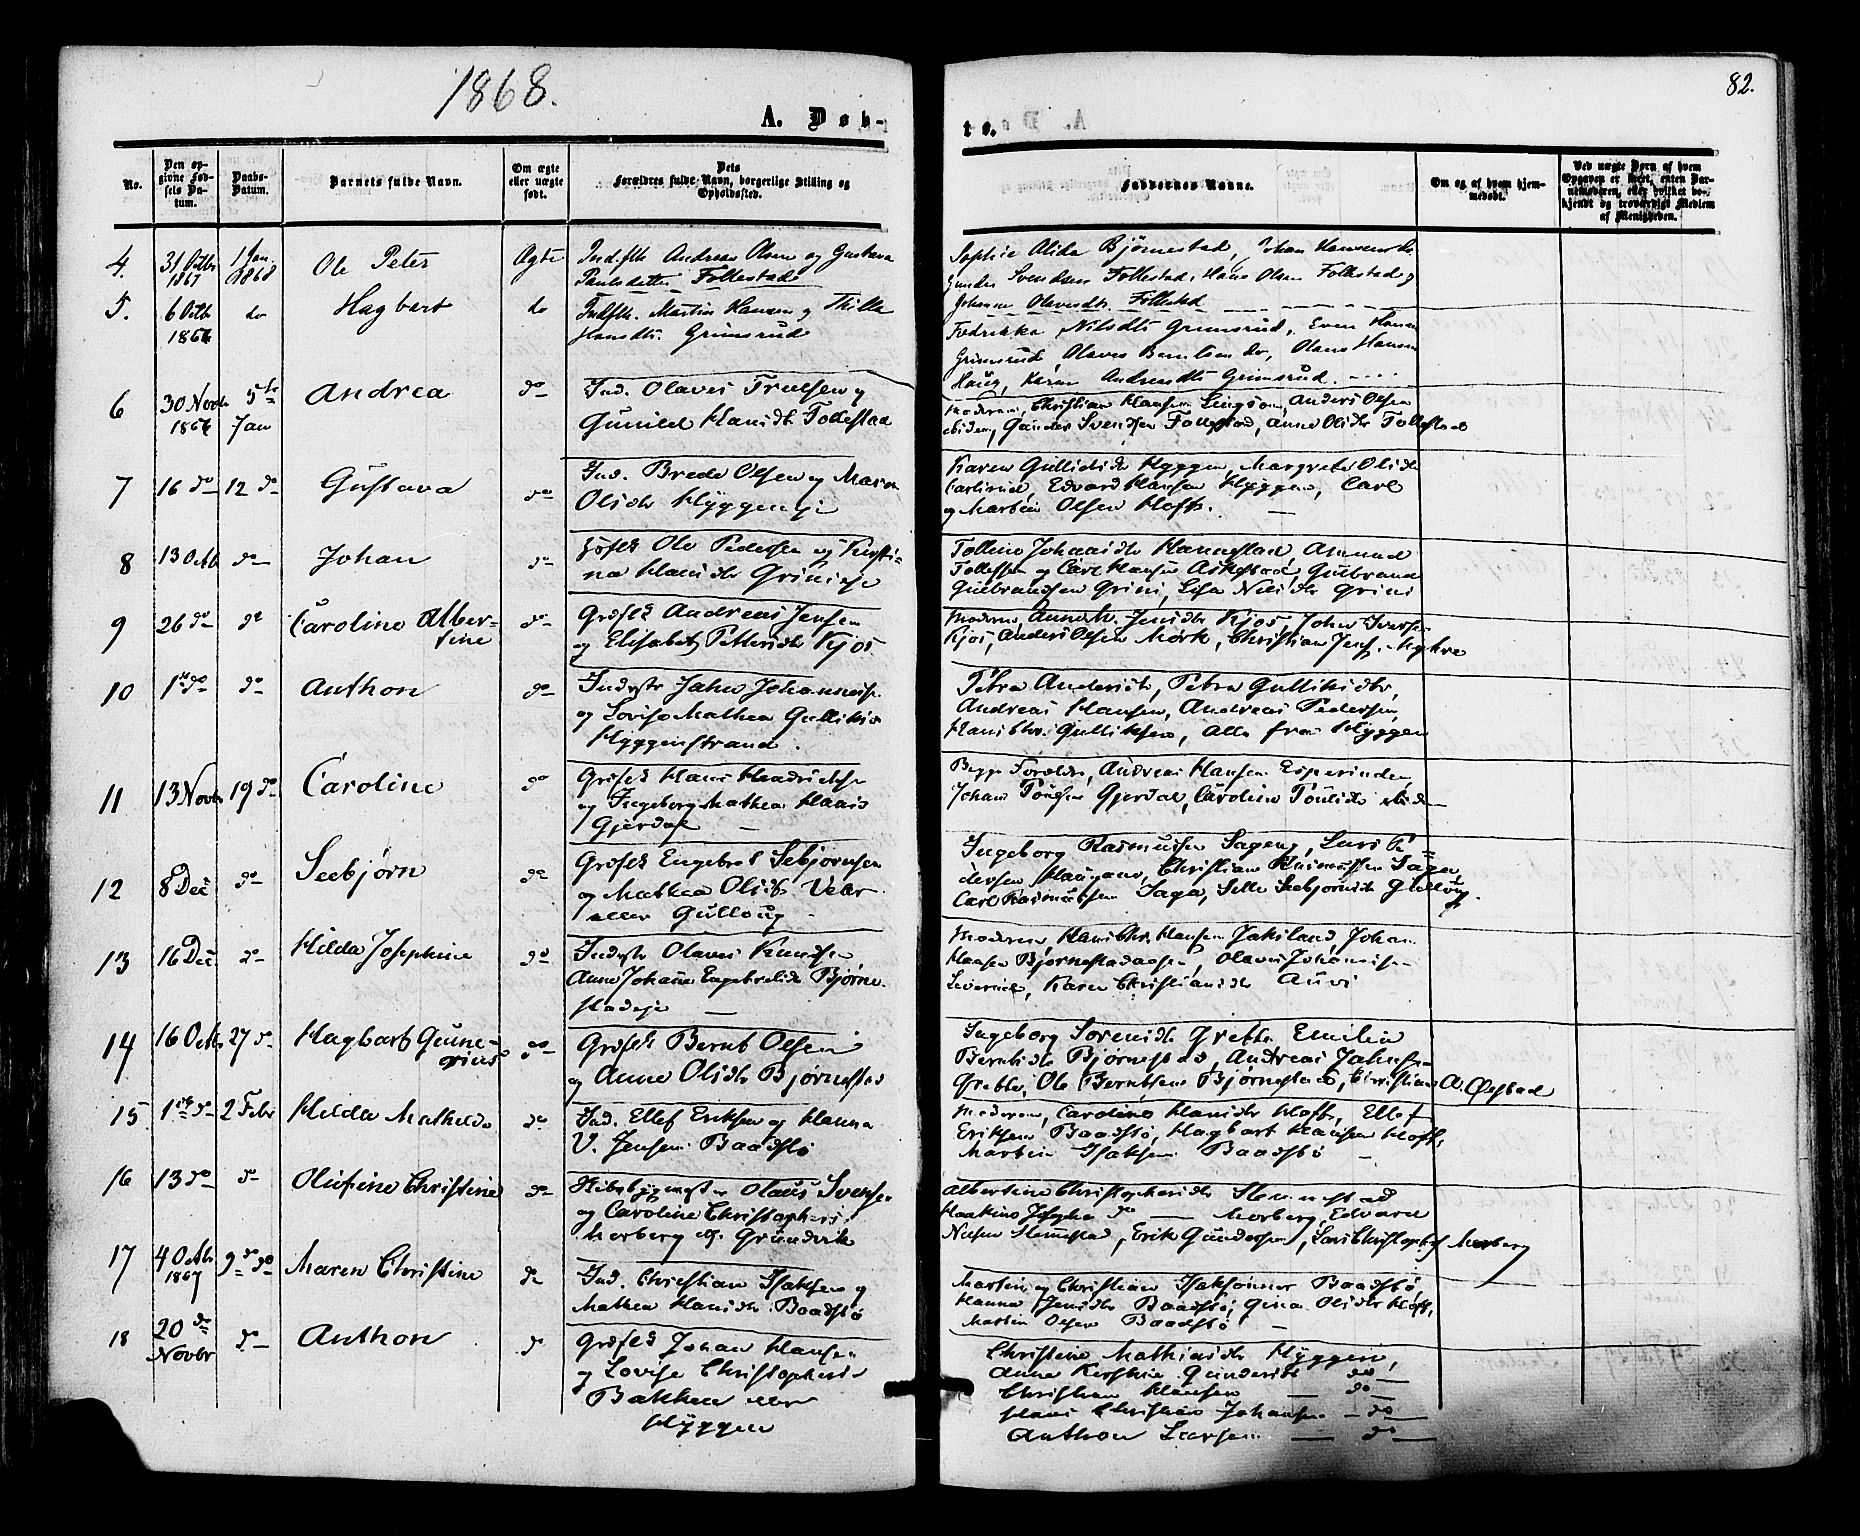 1868.
82.
A. Døb-
te.
No.
Den op-
givne Fød-
sels Da-
tum.
Daabs-
Datum.
Barnets fulde Navn.
Om ægte
eller uægte
født.
Dets
Forældres fulde Navn, borgerlige Stilling og
Opholdssted.
Faddernes Navne.
Om og af hvem hjem-
medøbt.
Ved uægte Børn af hvem
Opgaven er skeet, enten Bar-
nemoderen, eller hvilket be-
kjendt og troværdigt Medlem
af Menigheden.
4. 31 Octbr 1867 1 Jan. 1868 Ole Peter Ægte
Indsth Andreas Olsen og Gustava
Paulsdatter Follestad
Sophie Alida Bjørnestad, Johan Hansen do
Gunder Svendsen Follestad, Hans Olsen Follestad og
Johanne Olavesdtr Follestad
5. 6 Octb 1867 do Hagbart do
Indsth. Martin Hansen og Thilla
Hansdtr. Grimsrud
Fredrikka Nilsdtr Grimsrud, Even Hansen
Grimsrud, Olaves Berntsen do, Olaus Hansen
Haug, Karen Andreasdtr Grimsrud.
6 30 Novbr 1867 5te Jan Andrea do
Ind. Olaves Truelsen og
Gunild Hansdtr Follestad
Moderen, Christian Hansen, Anders Olsen
ibiden, Gunder Svendsen Follestad, Anne Olsdtr Follestad
7 16 do 12 do Gustava do
Ind. Brede Olsen og Maren
Olsdtr Hyggen eje
Karen Gulliksdtr Hyggen, Margrete Olsdtr
Carlsrud, Edvard Hansen Hyggen, Carl
og Martin Olsen Hofts.
8 13 Octb do Johan do
Ole Pedersen og Kirsti-
na Hansdtr Grini eje
Tolline Johansdtr Hannestad, Amund
Tollefsen og Carl Hansen Askestad, Gulbrand
Gulbrandsen Grini, Lisa Nilsdtr Grini
9 26 do do Caroline Alber-
tine do
Grdfsk Andreas Jensen
og Elisabet Pettersdtr Kjos
Moderen, Anne M. Jensdtr Kjos, John Iversen
Kjos, Anders Olsen Mørk, Christian Jens. Myhre
10 1ste do do Anthon do
Indsth John Johannes.
og Lovise Mathea Gulliks
Hyggenstrand.
Petra Andersdtr, Petra Gulliksdtr,
Andreas Hansen, Andreas Pedersen,
Hans Chr. Gulliksen, alle fra Hyggen
11 13 Novbr 19 do Caroline do
Grdfsk Hans Hendriksen
og Ingeborg Mathea Hans
Gjerdal
Begge Foreldre, Andreas Hansen Esperinden,
Johan Poulsen Gjerdal, Caroline Poulsdtr ibiden
12 8 Dec do Seebjørn do
Grdfsk Engebret Sebjørnsen
og Mathea Olsdtr Vear
eller Gulloug
Ingeborg Rasmusen Sagen, Lars Pe-
dersen Haugane, Christian Rasmussen Sagen,
Carl Rasmussen Saga, Sille Seebjørnsdtr Gulloug.
13 16 Dec do Hilda Josephine do
Indsth Olaves Knudsen
Anne Johane Engebretsdtr Bjørne-
stadeje
Moderen, Hans Chr. Hansen Jaksland, Johan
Hansen Bjørnestadaasen, Olaves Johansen
Karen Christiansdtr Auvi
14 16 Octbr 27 do Hagbart Gune-
rius do
Grdfsk Bernt Olsen
og Anne Olsdtr Bjørnestad
Ingeborg Sørensdtr Grette Emilie
Berntsdtr Bjørnestad, Andreas Johns.
Grette, Ole Berntsen Bjørnestad, Christian A. Øystad
15 1ste do 2 Febr Hilda Mathilda do
Ind. Ellef Eriksen og Hanna
V. Jensen Baadstø
Moderen, Caroline Hansdtr Hofts, Ellef
Eriksen Baadstø, Hagbart Hansen Hofts,
Martin Isaksen Baadstø
16 13 do do Olufine Christine do
Skibsbygmester Olaus Svensen
og Caroline Christophers.
Morberg eller Grundvik
Albertine Christophersdtr Slemmestad
Haakine Josepha do Morberg, Edvard
Nielsen Slemestad, Erik Gundersen, Lars Christophs. Morberg
17 4 Octbr 1867 9de do Maren Christine do
Ind. Christian Isaksen og
Mathea Hansdtr Baadstø
Martin og Christian Isaksønner Baadstø
Hanna Jensdtr Baadstø, Gina Olsdtr Hofts,
Martin Olsen Baadstø,
18 20de Novbr do Anthon do
Grdfsk Johan Hansen
og Lovise Christophers
Bakken eller
Hyggen
Christine Mathiasdtr Hyggen,
Anne Kirstine Gundersdtr do
Christian Hansen do
Hans Christian Johansen do
Anthon Larsen do